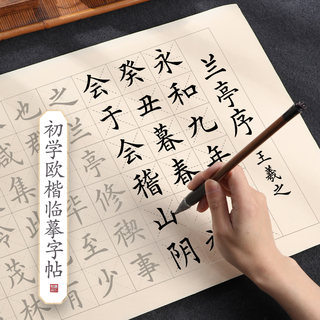 兰亭序
王羲之
永和九年
癸丑暮春
会于会稽山阴
之兰亭修禊事
也群
至少
初学欧楷临摹字帖